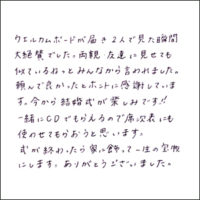 ウェルカムボードが届き2人で見た瞬間
大絶賛でした。両親・友達に見せても
似ているねっとみんなから言われました。
頼んで良かったとホントに感謝していま
す。今から結婚式が楽しみです!!
一緒にCDでもらえるので席次表にも
使わせてもらおうと思います。
式が終わったら家に飾って一生の宝物
にします。ありがとうございました。